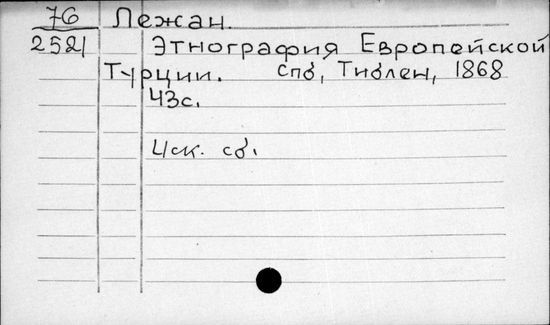 76 Лежан.
2521 Этнография Европейской
Турции. спб, Тиблен, 1868
43с.
4ск. сб.